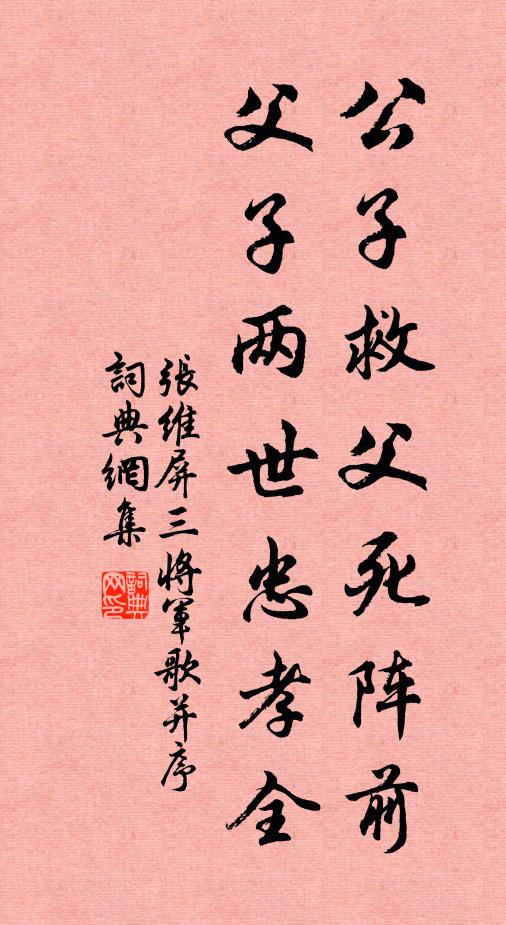 公子救父死阵前
父子两世忠孝全
張維屏三将軍歌并序
詞典網集
詞典網印